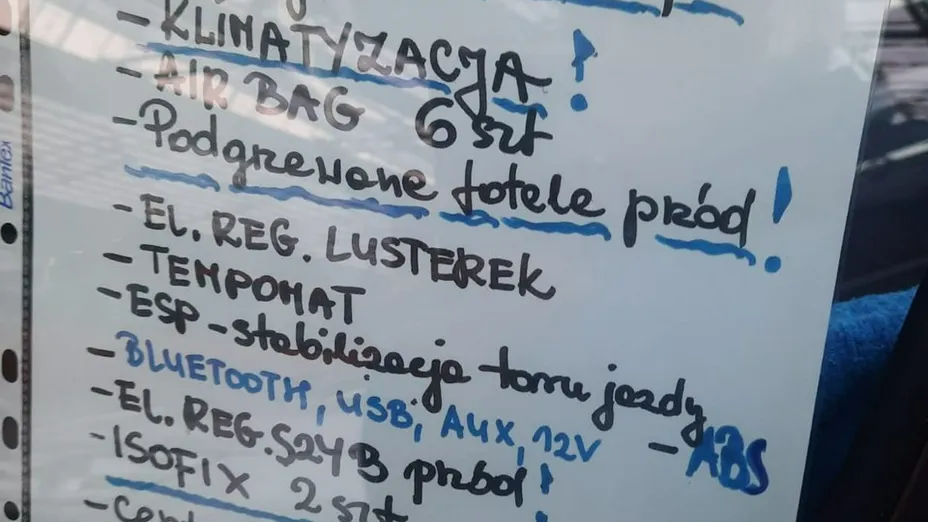 - KLIMATYZACJA !
- AIR BAG 6 szt
- Podgrzewane fotele przód !
- EL. REG. LUSTEREK
- TEMPOMAT
- ESP - stabilizacja toru jazdy
- BLUETOOTH, USB, AUX, 12V - ABS
- EL. REG. SZYB przód !
- ISOFIX 2 szt
Bantex